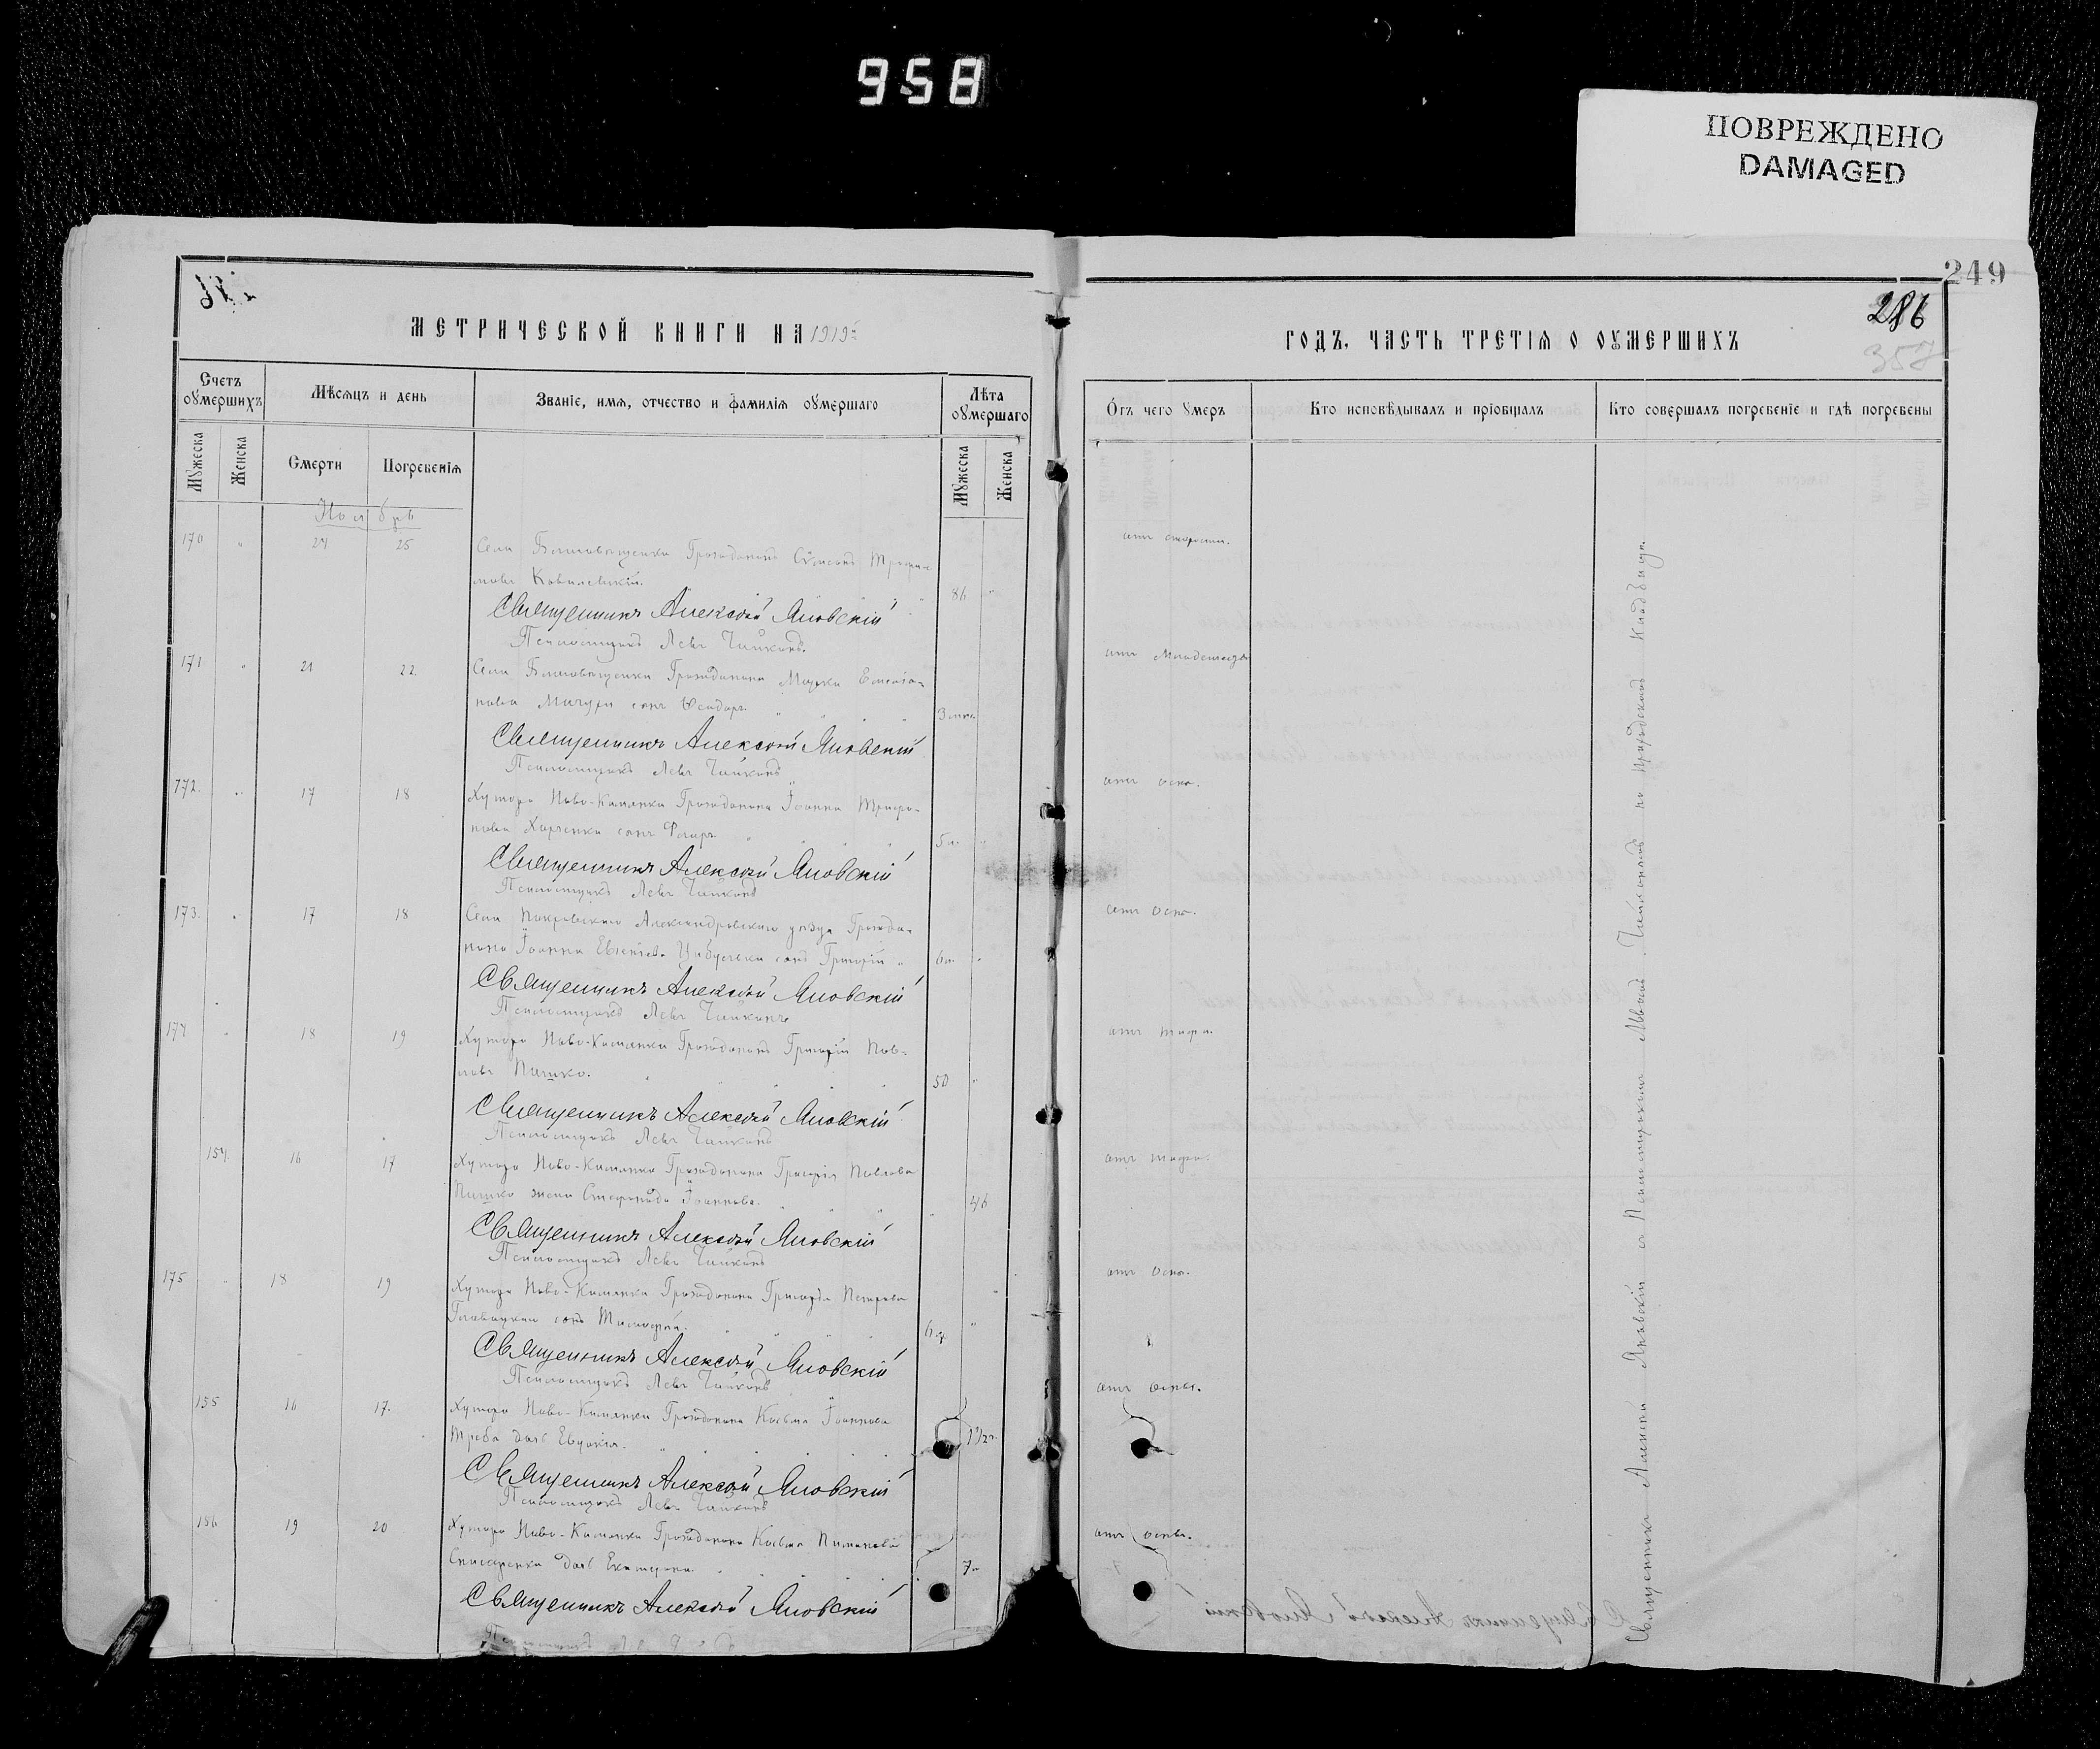 958
ПОВРЕЖДЕНО
DAMAGED
249
286
357
МЕТРИЧЕСКОЙ КНИГИ НА 1919 г.
ГОДЪ, ЧАСТЬ ТРЕТІѦ О ОУМЕРШИХЪ
Счетъ оумершихъ
Мѣсѧцъ и день
Званіе, имѧ, отчество и фамиліѧ оумершаго
Лѣта оумершаго
Отъ чего умеръ
Кто исповѣдывалъ и пріобщалъ
Кто совершалъ погребеніе и гдѣ погребены
Мужеска
Женска
Смерти
Погребеніѧ
Мужеска
Женска
Ноябрь
170 " 24 25 Села Благовѣщенки Гражданинъ Сѵмеонъ Трофи-
мовъ Ковалевскій. 86 " отъ старости.
Священникъ Алексѣй Яновскій
Псаломщикъ Левъ Чайкинъ.
171 " 21 22 Села Благовѣщенки Гражданина Марка Емелiа-
нова Мичури сынъ Ѳеодоръ. 3 мѣс. отъ младенчества
Священникъ Алексѣй Яновскій
Псаломщикъ Левъ Чайкинъ
172. " 17 18 Хутора Ново-Камянки Гражданина Іоанна Трифо-
нова Харченка сынъ 5 л. " отъ оспы.
Священникъ Алексѣй Яновскій
Псаломщикъ Левъ Чайкинъ
173. " 17 18 Села Покровскаго Александровскаго уѣзда Гражда-
нина Іоанна Цибульки сынъ Григорій " 6 " отъ оспы.
Священникъ Алексѣй Яновскій
Псаломщикъ Левъ Чайкинъ
174 " 18 19 Хутора Ново-Камянки Гражданинъ Григорій Пав-
ловъ Пишко. 50 " отъ тифа.
Священникъ Алексѣй Яновскій
Псаломщикъ Левъ Чайкинъ
154. 16 17 Хутора Ново-Камянки Гражданина Григорія Павлова
Пишко жена Стефанида Іоаннова. " 46 отъ тифа.
Священникъ Алексѣй Яновскій
Псаломщикъ Левъ Чайкинъ
175 " 18 19 Хутора Ново-Камянки Гражданина Григорія Петрова
Главацкаго сынъ Тимофей. 6 " отъ оспы.
Священникъ Алексѣй Яновскій
Псаломщикъ Левъ Чайкинъ
155 16 17. Хутора Ново-Камянки Гражданина Косьмы Іоаннова
Треба дочь Евдокія. 1 1/2 г. отъ оспы.
Священникъ Алексѣй Яновскій
Псаломщикъ Левъ Чайкинъ
156 19 20 Хутора Ново-Камянки Гражданина Косьмы
дочь Екатерина. 7 отъ оспы.
Священникъ Алексѣй Яновскій
Псаломщикъ
Священникъ Алексѣй Яновскій съ Псаломщикомъ Львомъ Чайкинымъ на Приходскомъ Кладбищѣ.